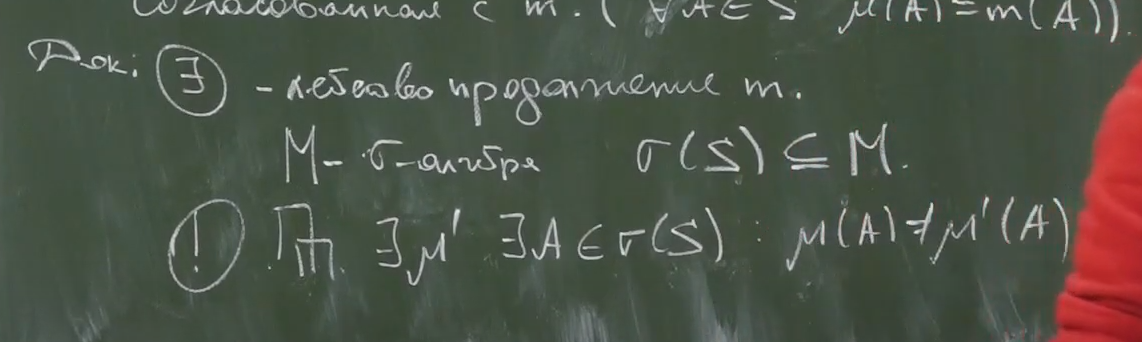 согласованная с m. ( ∀A∈S μ(A)=m(A)).
Док: ∃ - лебегово продолжение m.
M - σ-алгебра σ(S) ⊆ M.
! ∃μ' ∃A∈σ(S) : μ(A)≠μ'(A)